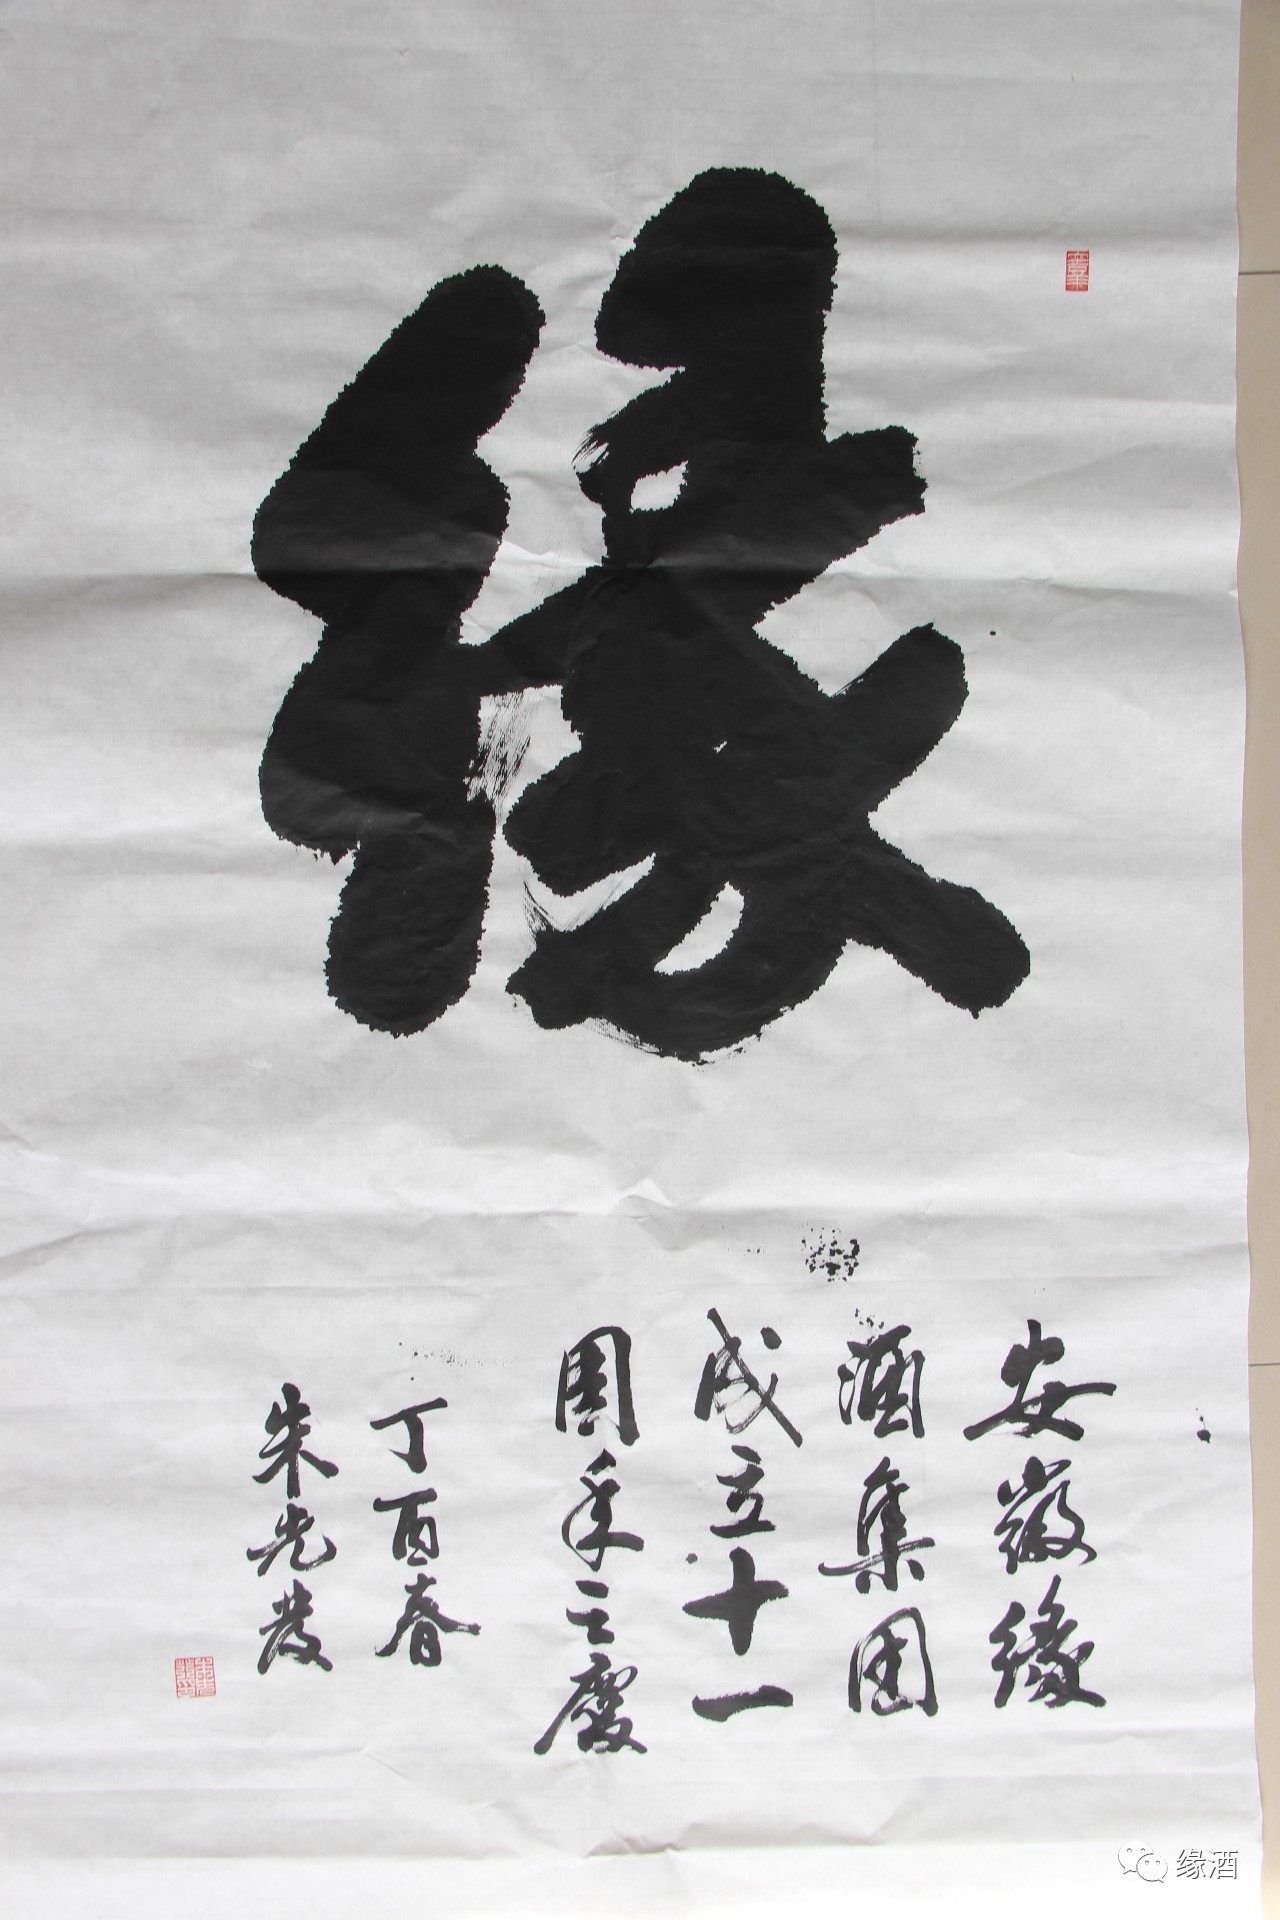 緣
安徽緣
酒集团
成立十一
周年之慶
丁酉春
朱光发
缘酒